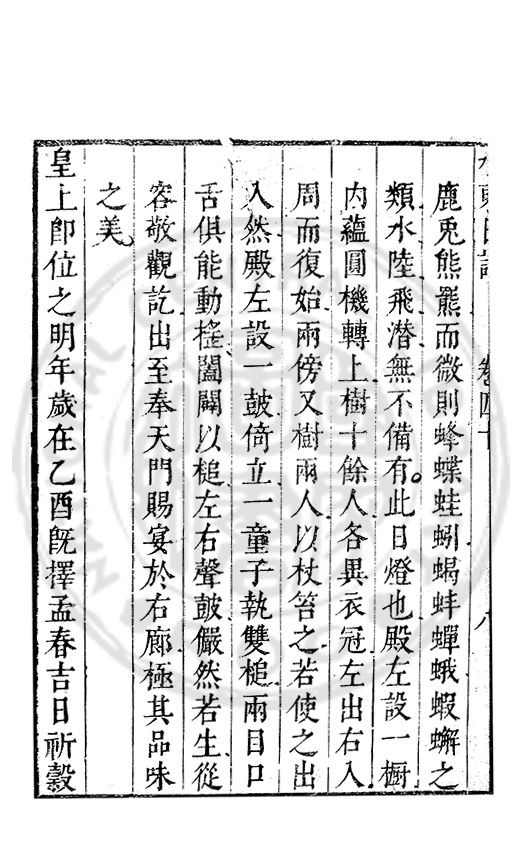 水東日記 卷四十 八
鹿兎熊羆而微則蜂蝶蛙蚓蝎蚌蟬蛾蝦蠏之
類水陸飛潛無不備有。此日燈也殿左設一橱
内蘊圓機轉上樹十餘人各異衣冠左出右入、
周而復始、兩傍又樹兩人、以杖笞之、若使之出
入然、殿左設一皷、倚立一童子執雙槌、兩目口
舌俱能動揺闔闢、以槌左右聲皷、儼然若生、從
容敬觀訖出至奉天門賜宴於右廊、極其品味
之美、
皇上卽位之明年歲在乙酉旣擇孟春吉日祈穀